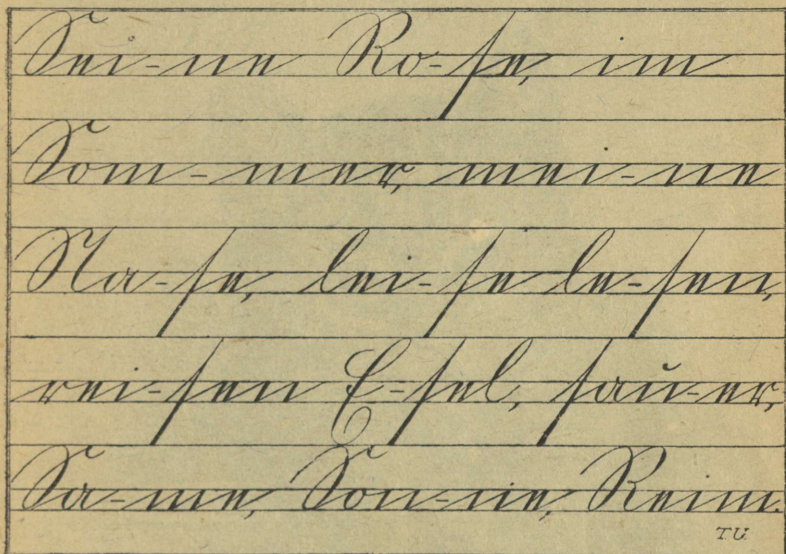 Sei-ne Ro-se, im
Som-mer, mei-ne
Na-se, lei-se le-sen,
rei-sen E-sel, sau-er,
Sa-me, Son-ne, Reim.
T.U.